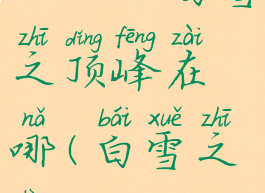 zhī dǐng fēng zài
之顶峰在
nǎ bái xuě zhī
哪(白雪之